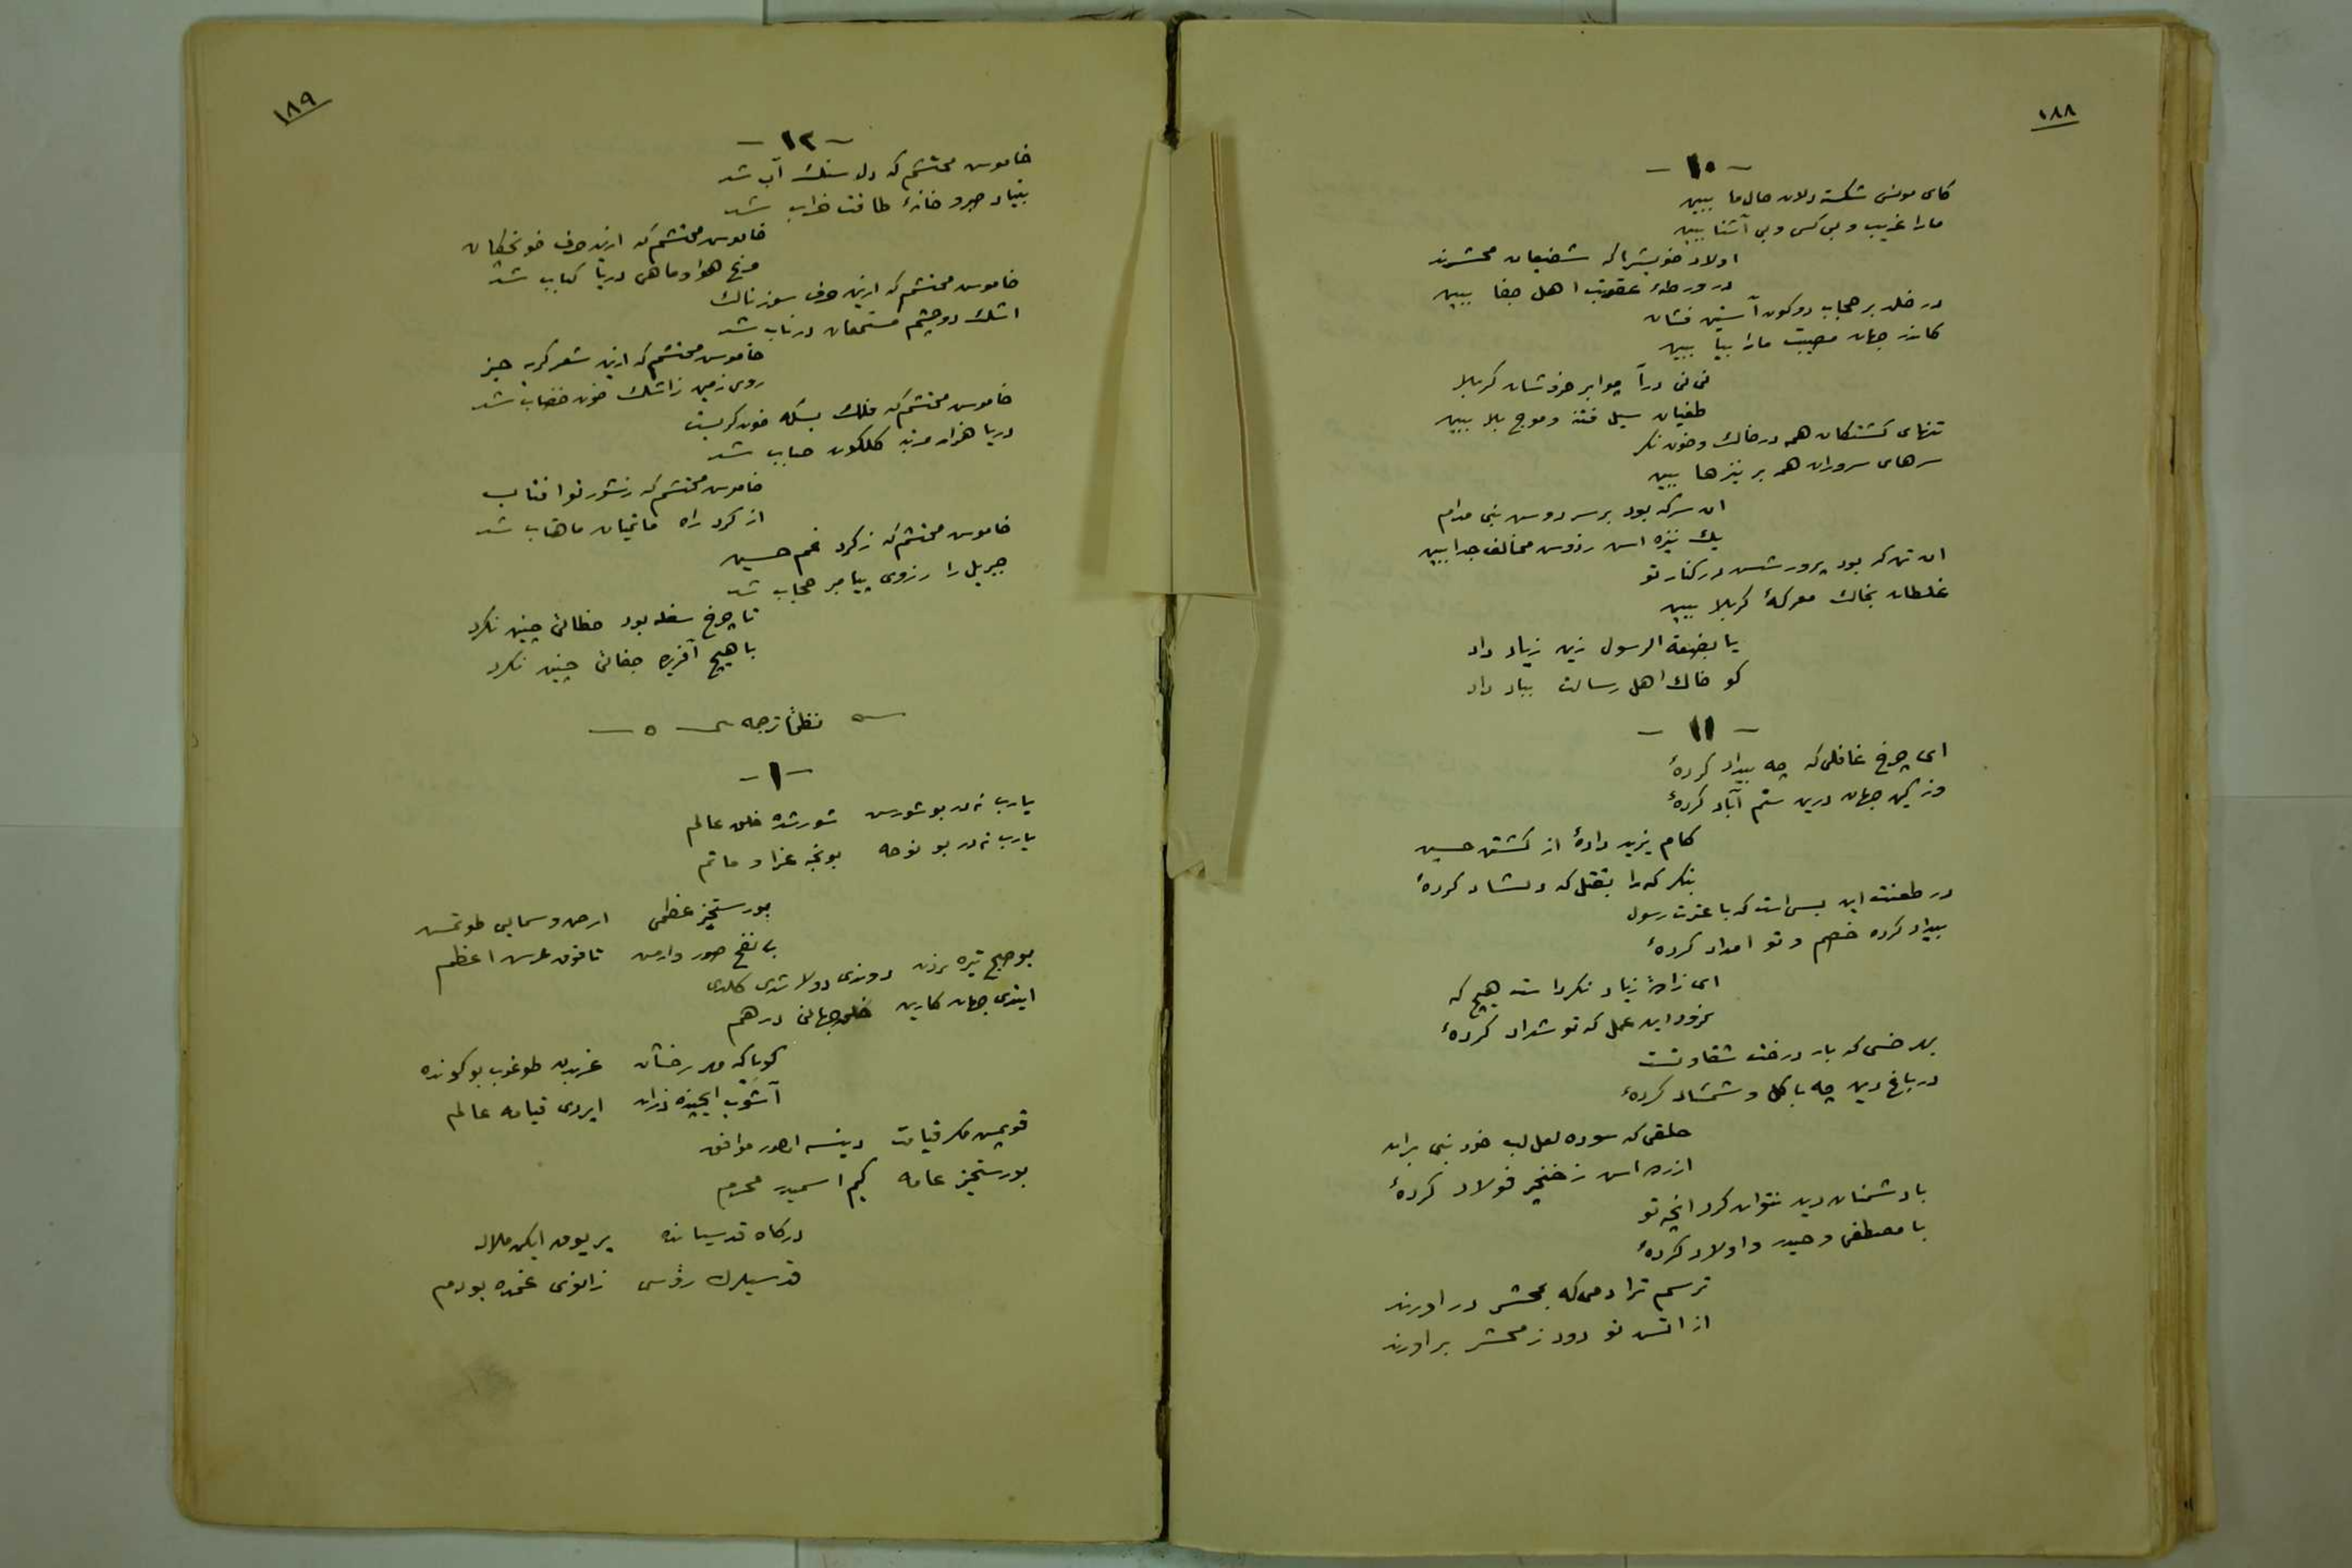 ١٨٨
- ١٠ -
كاى مونس شكسته دلان حال ما ببين
مارا غريب و بى كس و بى آشنا ببين
اولاد خويشرا كه شفيعان محشرند
در ورطهٔ عقوبت اهل جفا ببين
در خلد بر حجاب دو كون آستين فشان
كاندر جهان مصيبت مارا بيا ببين
نى نى درآ چو ابر خروشان كربلا
طغيان سيل فتنه و موج بلا ببين
تنهاى كشتكان همه در خاك و خون نكر
سرهاى سروران همه بر نيزها ببين
ان سر كه بود بر سر دوس نبى مدام
يك نيزه اس ز دوس مخالف جدا ببين
ان تن كه بود پرورشس در كنار تو
غلطان بخاك معركهٔ كربلا ببين
يا بضعة الرسول زين زياد داد
كو خاك اهل رسالت بباد داد
- ١١ -
اى چرخ غافلى كه چه بيداد كردهٔ
وز كين جهان درين ستم آباد كردهٔ
كام يزيد دادهٔ از كشتن حسين
بنكر كه را بقتل كه دلشاد كردهٔ
در طعنت اين بس است كه با عترت رسول
بيداد كرده خصم و تو امداد كردهٔ
اى زادهٔ زياد نكرداست هيچ كه
نمرود اين عمل كه تو شداد كردهٔ
بهر خسى كه بار درخت شقاوتست
در باغ دين چه با كل و شمشاد كردهٔ
حلقى كه سوده لعل لب خود نبى بران
ازرده اس ز خنجر فولاد كردهٔ
با دشمنان دين نتوان كرد انچه تو
با مصطفى و حيدر و اولاد كردهٔ
ترسم ترا دمى كه بمحشر در اورند
از اتس تو دود ز محشر بر اورند
١٨٩
- ١٢ -
خاموس محتشم كه دل سنك آب شد
بنياد صبر و خانهٔ طاقت خراب شد
خاموس محتشم كه ازين حرف خونچكان
مرغ هوا و ماهى دريا كباب شد
خاموس محتشم كه ازين حرف سوزناك
اشك دو چشم مستمعان در ناب شد
خاموس محتشم كه ازين شعر كريه خيز
روى زمين ز اشك خون خضاب شد
خاموس محتشم كه فلك بسكه خون كريست
دريا هزار مرتبه كلكون حباب شد
خاموس محتشم كه ز شور تو افتاب
از كرد راه ماتميان ماهتاب شد
خاموس محتشم كه ز كرد غم حسين
جبريل را ز روى پيامبر حجاب شد
تا چرخ سفله بود خطائى چنين نكرد
با هيچ آفريده جفائى چنين نكرد
نظمًا ترجمه سى
- ١ -
يارب نه در بو شورس شورشده خلق عالم
يارب نه در بو نوحه بونجه عزا و ماتم
بو رستخيز عظمى ارض و سمايى طوتمس
بى نفخ صور وارمس تا فوق عرس اعظم
بو صبح تيره نردن دوندى دولاشدى كلدى
ايتدى جهان كارين خلق جهانى درهم
كويا كه مهر رخشان غربدن طوغوب بو كونده
آشوب ايچنده ذرات ايردى قيامه عالم
قوپمس مكر قيامت دينسه اولور موافق
بو رستخيز عامه كيم اسميدر محرم
دركاه قدسيانده ير يوق ايكن ملاله
قدسيلرك رؤسى زانوى غمده بو دم